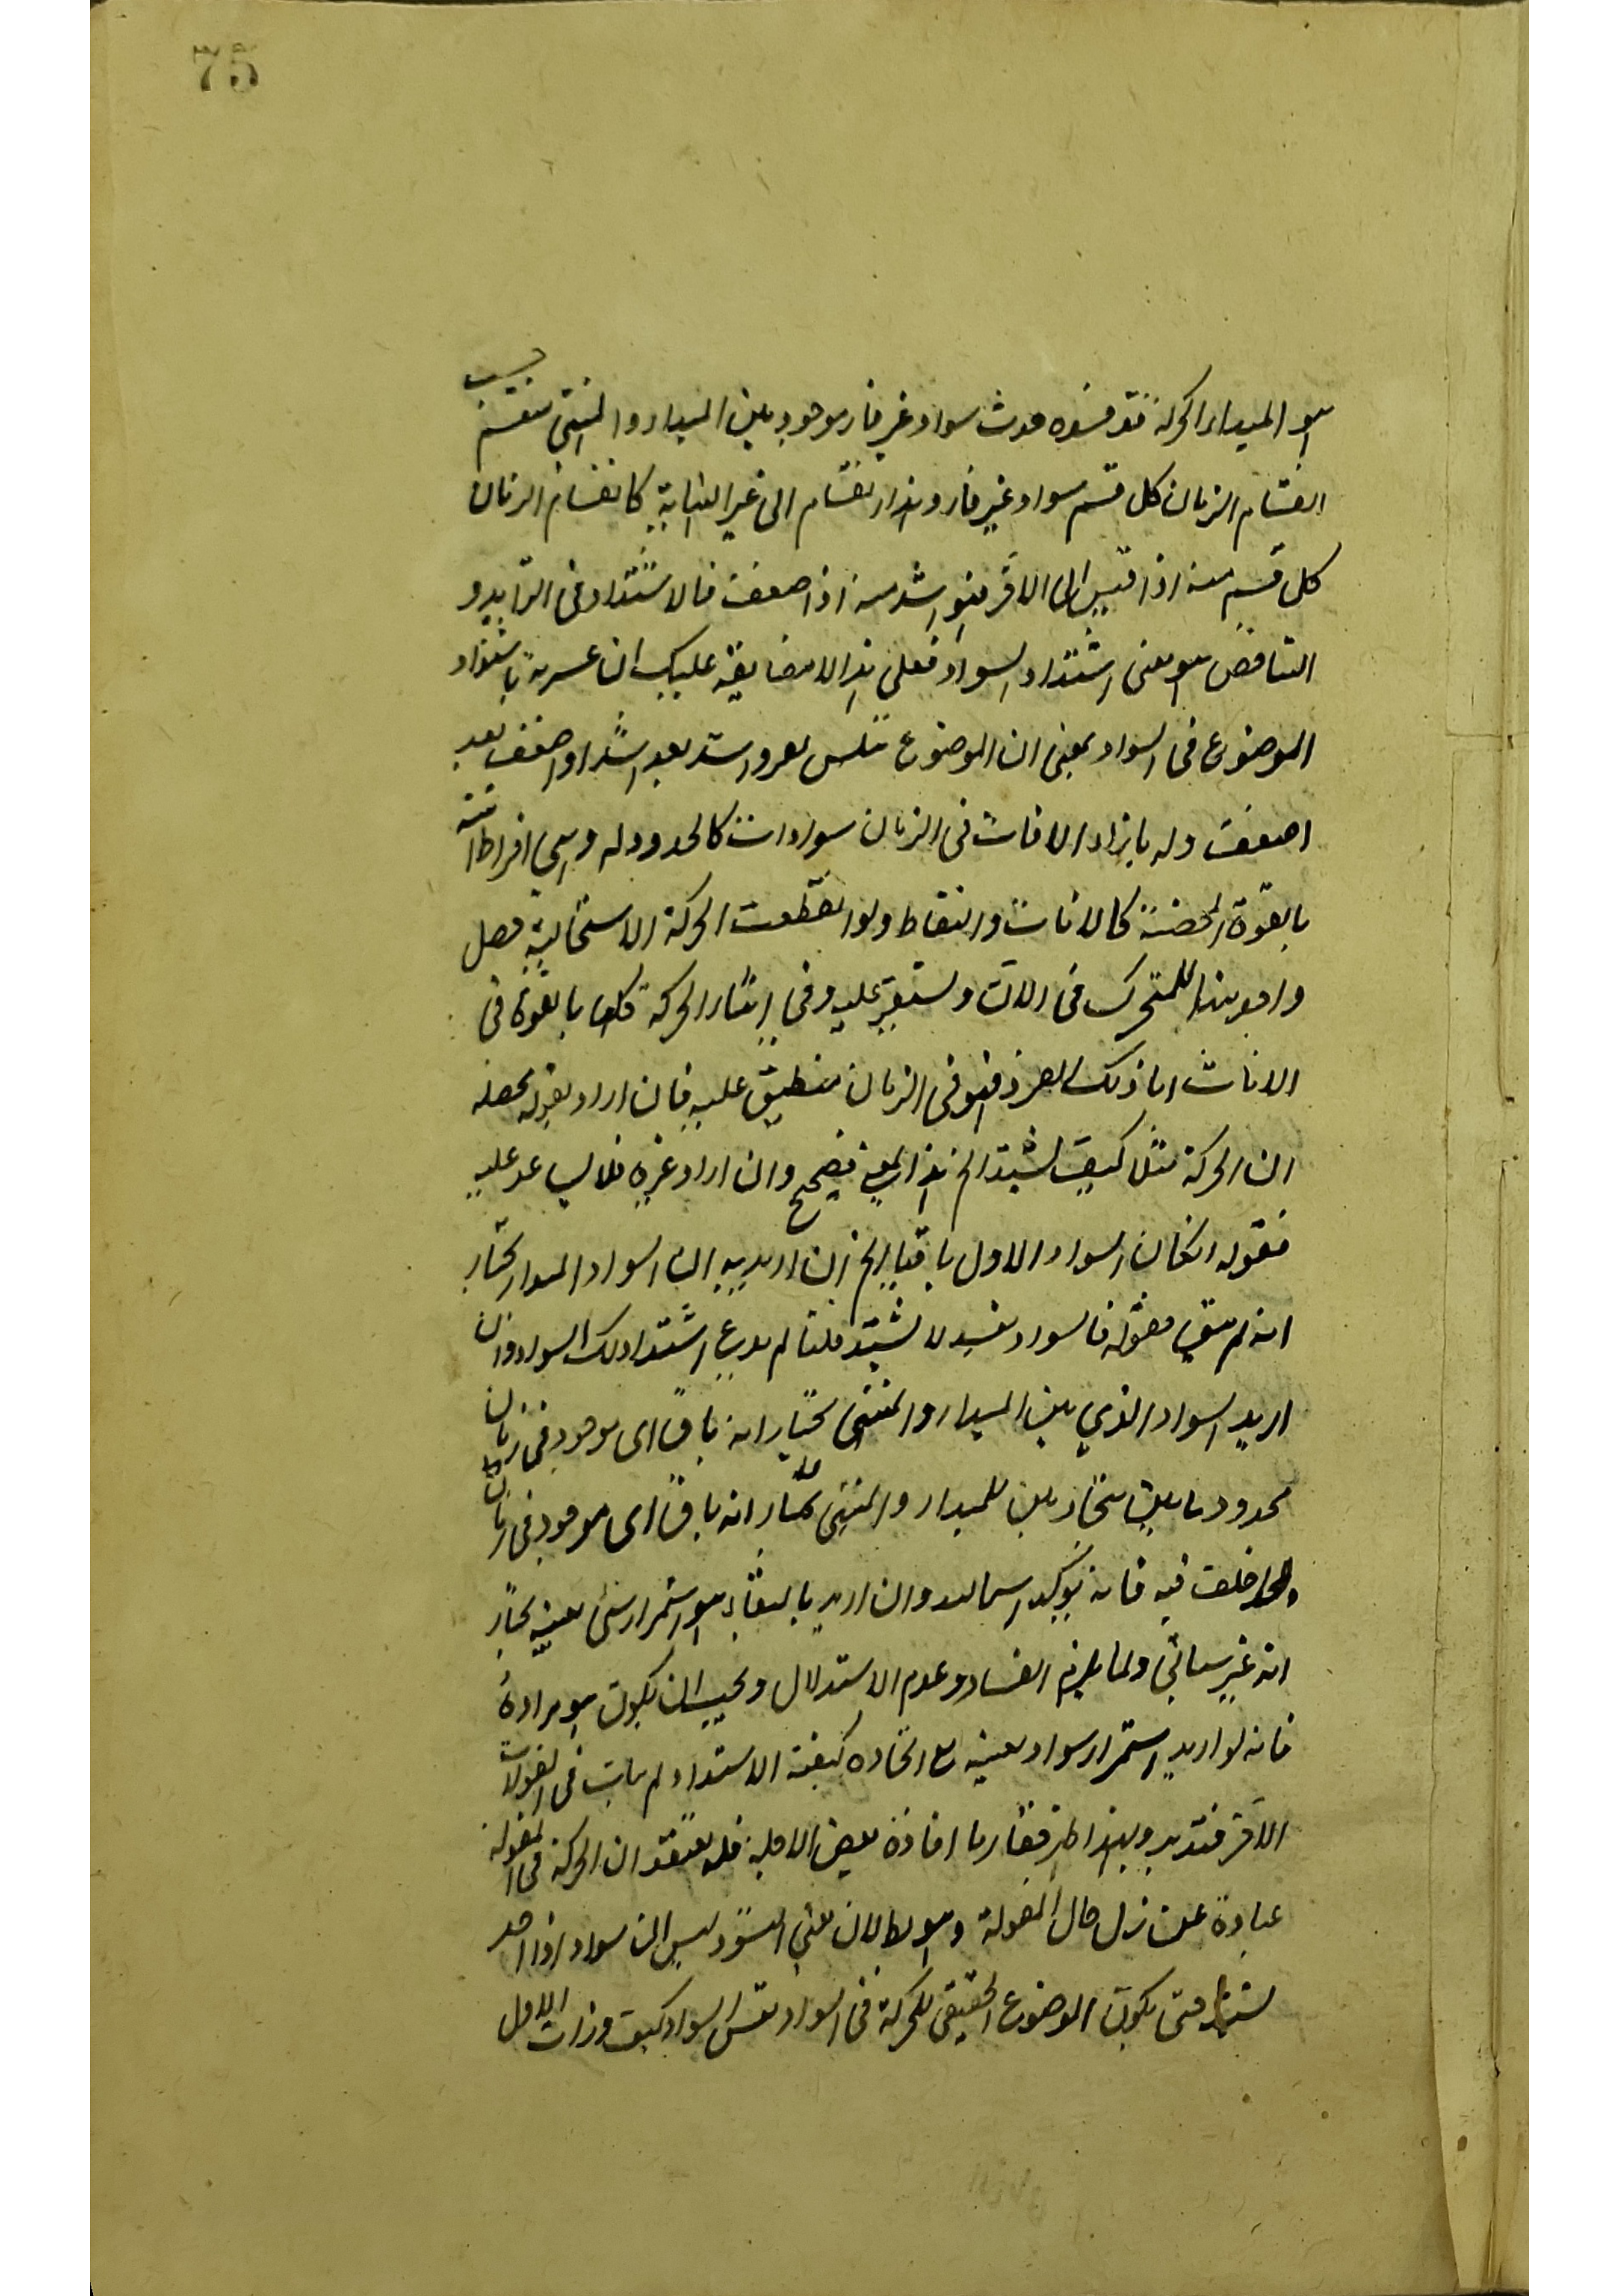 75
هو المبدا الحركة فقد حدث سواد غير قار موجود بين المبدا والمنتهى منقسم حسب
انقسام الزمان كل قسم سواد غير قار وهذا انقسام الى غير النهاية كانقسام الزمان
كل قسم منه اذا قيس الى الاخر فهو اشد منه اذا ضعف فالاشتداد فى التزايد و
التناقص هو معنى اشتداد السواد فعلى هذا لا مضايقة عليك ان عبر به باشتداد
الموضوع فى السواد بمعنى ان الموضوع اشد بعد اشد او اضعف بعد
اضعف وله بازاء الانات فى الزمان سوادات كالحدود له وهى افراط آنية
بالقوة المحضة كالانات والنقاط ولو انقطعت الحركة الاستحالية حصل
واحد منها للمتحرك فى الان ويستقر عليه وفى اثناء الحركة كلها بالقوة فى
الانات اما ذلك الفرد فهو فى الزمان منطبق عليه فان اراد بقوله محصله
ان الحركة مثلا كيف يشتد الخ هذا المعنى فصحيح وان اراد غيره فلا يساعد عليه
فقوله ان كان السواد الاول باقيا الخ ان اريد به السواد المبدا نختار
انه لم يبق فقوله فالسواد نفسه لا يشتد قلنا لم ندع اشتداد ذلك السواد وان
اريد السواد الذي بين المبدا والمنتهى نختار انه باق اى موجود فى زمان
محدود ما بين للمبدا والمنتهى نختار انه باق اى موجود فى زمان
فيه فانه يؤكد وان اريد بالبقاء هو استمرار شئ بعينه نختار
انه غير باق ولما يلزم الفساد وعدم الاستدلال ويجب ان يكون هو مراده
فانه لو اريد استمرار سواد بعينه مع اتحاده كيفية الاشتداد لم يات فى المقولات
الاخر فتدبر وبهذا ظهر فقار ما افاده بعض الاجلة فلا يعتقد ان الحركة فى المقولة
عبارة عن حال المقولة وهو بطلان معنى التسود ليس ان سوادا واحدا
يشتد حتى يكون الموضوع الحقيقى للحركة فى السواد نفس السواد كيف وذات الاول